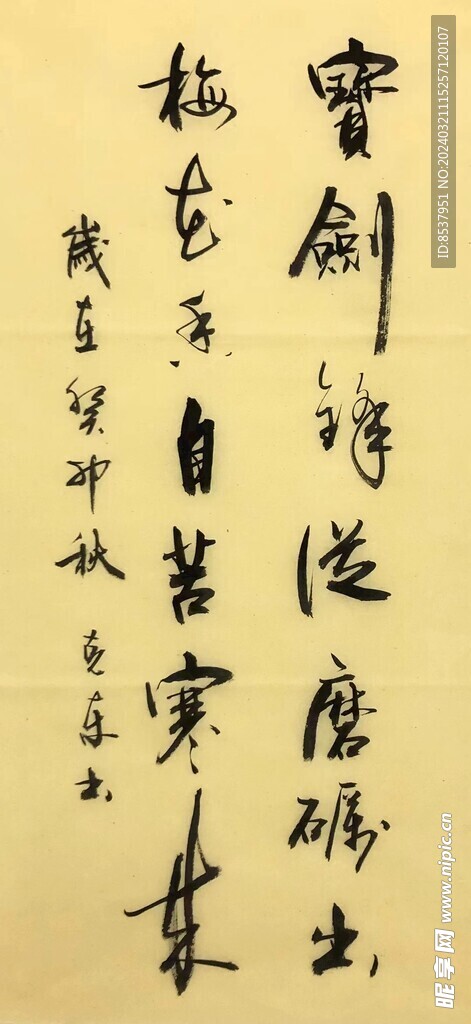 寳劍鋒從磨礪出
梅花香自苦寒來
歲在癸卯秋 克東書
ID:8537951 NO:20240321115257120107
昵享网 www.nipic.cn